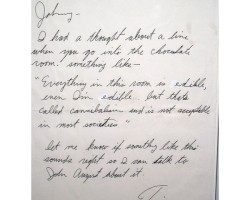 Johnny-
I had a thought about a line
when you go into the chocolate
room. something like-
"Everything in this room is edible,
even I'm edible. but that's
called cannibalism and is not acceptable
in most societies"
let me know if somethig like this
sounds right so I can talk to
John August about it.